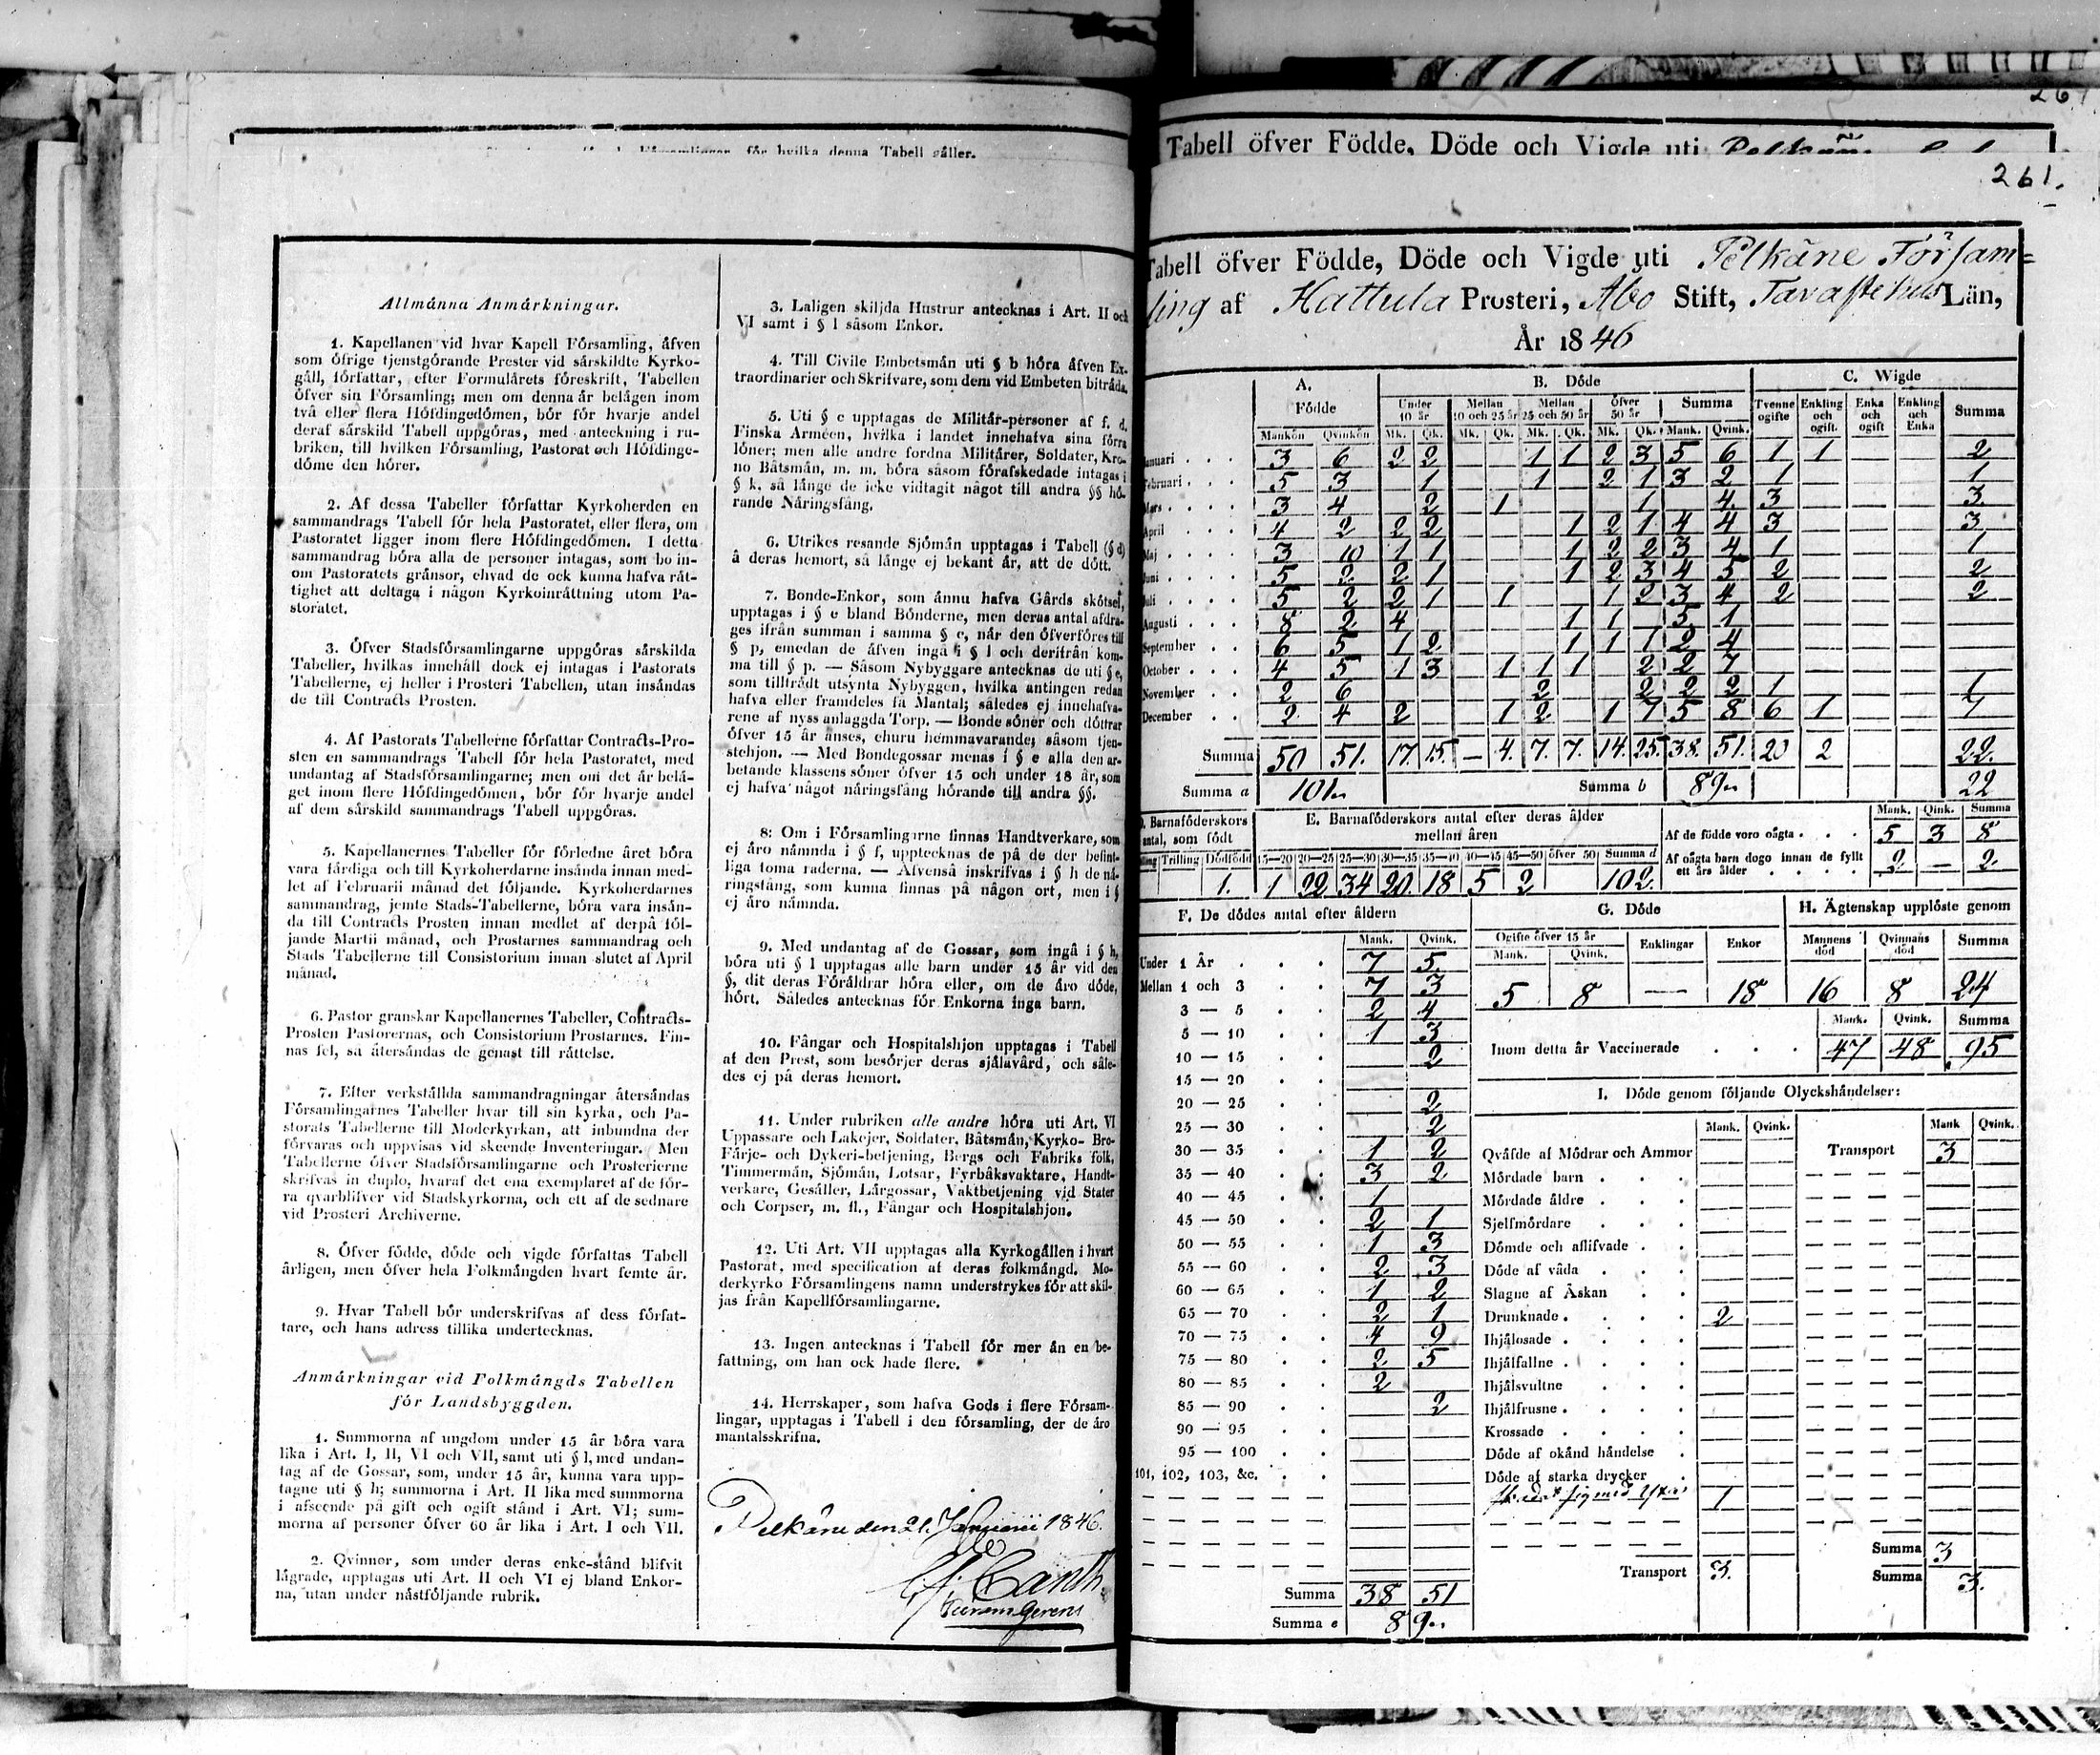 för hvilka denna Tabell gäller.
Allmänna Anmärkningar.
1. Kapellanen vid hvar Kapell Församling, äfven
som öfrige tjenstgörande Prester vid särskildte Kyrko-
gäll, författar, efter Formulärets föreskrift, Tabellen
öfver sin Församling; men om denna är belägen inom
två eller flera Höfdingedömen, bör för hvarje andel
deraf särskild Tabell uppgöras, med anteckning i ru-
briken, till hvilken Församling, Pastorat och Höfdinge-
döme den hörer.
2. Af dessa Tabeller författar Kyrkoherden en
sammandrags Tabell för hela Pastoratet, eller flera, om
Pastoratet ligger inom flere Höfdingedömen. I detta
sammandrag böra alla de personer intagas, som bo in-
om Pastoratets gränsor, ehvad de ock kunna hafva rät-
tighet att deltaga i någon Kyrkoinrättning utom Pa-
storatet.
3. Öfver Stadsförsamlingarne uppgöras särskilda
Tabeller, hvilkas innehåll dock ej intagas i Pastorats
Tabellerne, ej heller i Prosteri Tabellen, utan insändas
de till Contracts Prosten.
4. Af Pastorats Tabellerne författar Contracts-Pro-
sten en sammandrags Tabell för hela Pastoratet, med
undantag af Stadsförsamlingarne; men om det är belä-
get inom flere Höfdingedömen, bör för hvarje andel
af dem särskild sammandrags Tabell uppgöras.
5. Kapellanernes Tabeller för förledne året böra
vara färdiga och till Kyrkoherdarne insända innan med-
let af Februarii månad det följande. Kyrkoherdarnes
sammandrag, jemte Stads-Tabellerne, böra vara insän-
da till Contracts Prosten innan medlet af derpå föl-
jande Martii månad, och Prostarnes sammandrag och
Stads Tabellerne till Consistorium innan slutet af April
månad.
6. Pastor granskar Kapellanernes Tabeller, Contracts-
Prosten Pastorernas, och Consistorium Prostarnes. Fin-
nas fel, så återsändas de genast till rättelse.
7. Efter verkställda sammandragningar återsändas
Församlingarnes Tabeller hvar till sin kyrka, och Pa-
storats Tabellerne till Moderkyrkan, att inbundna der
förvaras och uppvisas vid skeende Inventeringar. Men
Tabellerne öfver Stadsförsamlingarne och Prosterierne
skrifvas in duplo, hvaraf det ena exemplaret af de för-
ra qvarblifver vid Stadskyrkorna, och ett af de sednare
vid Prosteri Archiverne.
8. Öfver födde, döde och vigde författas Tabell
årligen, men öfver hela Folkmängden hvart femte år.
9. Hvar Tabell bör underskrifvas af dess författ-
tare, och hans adress tillika undertecknas.
Anmärkningar vid Folkmängds Tabellen
för Landsbyggden.
1. Summorna af ungdom under 15 år böra vara
lika i Art. I, II, VI och VII, samt uti § l, med undan-
tag af de Gossar, som, under 15 år, kunna vara upp-
tagne uti § h; summorna i Art. II lika med summorna
i afseende på gift och ogift stånd i Art. VI; sum-
morna af personer öfver 60 år lika i Art. I och VII.
2. Qvinnor, som under deras enke-stånd blifvit
lägrade, upptagas uti Art. II och VI ej bland Enkor-
na, utan under nästföljande rubrik.
3. Laligen skiljda Hustrur antecknas i Art. II och
VI samt i § l såsom Enkor.
4. Till Civile Embetsmän uti § b höra äfven Ex-
traordinarier och Skrifvare, som dem vid Embeten biträda.
5. Uti § c upptagas de Militär-personer af f. d.
Finska Armèen, hvilka i landet innehafva sina förra
löner; men alle andre fordna Militärer, Soldater, Kro-
no Båtsmän, m. m. böra såsom förafskedade intagas i
§ k, så länge de icke vidtagit något till andra §§ hö-
rande Näringsfång.
6. Utrikes resande Sjömän upptagas i Tabell (§ d)
å deras hemort, så länge ej bekant är, att de dött.
7. Bonde-Enkor, som ännu hafva Gårds skötsel,
upptagas i § e bland Bönderne, men deras antal afdra-
ges ifrån summan i samma § e, när den öfverföres till
§ p, emedan de äfven ingå i § l och derifrån kom-
ma till § p. — Såsom Nybyggare antecknas de uti § e,
som tillträdt utsynta Nybyggen, hvilka antingen redan
hafva eller framdeles få Mantal; således ej innehafva-
rene af nyss anlaggda Torp. — Bonde söner och döttrar
öfver 15 år anses, ehuru hemmavarande, såsom tjen-
stehjon. — Med Bondegossar menas i § e alla den ar-
betande klassens söner öfver 15 och under 18 år, som
ej hafva något näringsfång hörande till andra §§.
8: Om i Församlingarne finnas Handtverkare, som
ej äro nämnda i § f, upptecknas de på de der befint-
liga toma raderna. — Äfvenså inskrifvas i § h de nä-
ringsfång, som kunna finnas på någon ort, men i §
ej äro nämnda.
9. Med undantag af de Gossar, som ingå i § h,
böra uti § l upptagas alle barn under 15 år vid den
§, dit deras Föräldrar höra eller, om de äro döde,
hört. Således antecknas för Enkorna inga barn.
10. Fångar och Hospitalshjon upptagas i Tabell
af den Prest, som besörjer deras själavård, och såle-
des ej på deras hemort.
11. Under rubriken alle andre höra uti Art. VI
Uppassare och Lakejer, Soldater, Båtsmän, Kyrko- Bro-
Färje- och Dykeri-betjening, Bergs och Fabriks folk,
Timmermän, Sjömän, Lotsar, Fyrbåksvaktare, Handt-
verkare, Gesäller, Lärgossar, Vaktbetjening vid Stater
och Corpser, m. fl., Fångar och Hospitalshjon.
12. Uti Art. VII upptagas alla Kyrkogällen i hvart
Pastorat, med specification af deras folkmängd. Mo-
derkyrko Församlingens namn understrykes för att skil-
jas från Kapellförsamlingarne.
13. Ingen antecknas i Tabell för mer än en be-
fattning, om han ock hade flere.
14. Herrskaper, som hafva Gods i flere Försam-
lingar, upptagas i Tabell i den församling, der de äro
mantalsskrifna.
Pelkäne den 21. Januarii 1846.
Canth.
gerens
Tabell öfver Födde, Döde och Vigde uti Pelkäne
261.
Tabell öfver Födde, Döde och Vigde uti Pelkäne Försam=
ling af Hattula Prosteri, Åbo Stift, Tavastehus Län,
År 1846
A. B. Döde C. Wigde
Födde Under 10 år Mellan 10 och 25 år Mellan 25 och 50 år Öfver 50 år Summa Tvenne ogifte Enkling och ogift. Enka och ogift Enkling och Enka Summa
Mankön Qvinkön Mk. Qk. Mk. Qk. Mk. Qk. Mk. Qk. Mank. Qvink.
Januari 3 6 2 2 1 1 2 3 5 6 1 1 2
Februari 5 3 1 1 2 1 3 2 1 1
Mars 3 4 2 1 1 4 3 3
April 4 2 2 2 1 2 1 4 4 3 3
Maj 3 10 1 1 1 2 2 3 4 1 1
Juni 5 2 2 1 1 2 3 4 5 2 2
Juli 5 2 2 1 1 1 2 3 4 2 2
Augusti 8 2 4 1 1 5 1
September 6 5 1 2 1 1 1 2 4
October 4 5 1 3 1 1 1 2 2 7
November 2 6 2 2 2 2 1 1
December 2 4 2 1 2 1 7 5 8 6 1 7
Summa 50 51. 17. 15. — 4. 7. 7. 14. 25. 38. 51. 20 2 22.
Summa a 101 Summa b 89 22
D. Barnaföderskors antal, som födt
Tvilling Trilling Dödfödd
1.
E. Barnaföderskors antal efter deras ålder mellan åren
15—20 20—25 25—30 30—35 35—40 40—45 45—50 öfver 50 Summa d
1 22 34 20 18 5 2 102.
Mank. Qink. Summa
Af de födde voro oägta . . . 5 3 8
Af oägta barn dogo innan de fyllt
ett års ålder . . . . 2 — 2
F. De dödes antal efter åldern
Mank. Qvink.
Under 1 År 7 5
Mellan 1 och 3 7 3
3 — 5 2 4
5 — 10 1 3
10 — 15 2
15 — 20
20 — 25 2
25 — 30 2
30 — 35 1 2
35 — 40 3 2
40 — 45 1
45 — 50 2 1
50 — 55 1 3
55 — 60 2 3
60 — 65 1 2
65 — 70 2 1
70 — 75 4 9
75 — 80 2 5
80 — 85 2
85 — 90 2
90 — 95
95 — 100
101, 102, 103, &c.
Summa 38 51
Summa e 89
G. Döde
Ogifte öfver 15 år Enklingar Enkor
Mank. Qvink.
5 8 — 18
H. Ägtenskap upplöste genom
Mannens död Qvinnans död Summa
16 8 24
Mank. Qvink. Summa
Inom detta år Vaccinerade . . . 47 48 95
I. Döde genom följande Olyckshändelser:
Mank. Qvink. Mank Qvink.
Qväfde af Mödrar och Ammor Transport 3
Mördade barn
Mördade äldre
Sjelfmördare
Dömde och aflifvade
Döde af våda
Slagne af Åskan
Drunknade 2
Ihjälosade
Ihjälfallne
Ihjälsvultne
Ihjälfrusne
Krossade
Döde af okänd händelse
Döde af starka drycker
sig med 1
Summa 3
Transport 3. Summa 3.